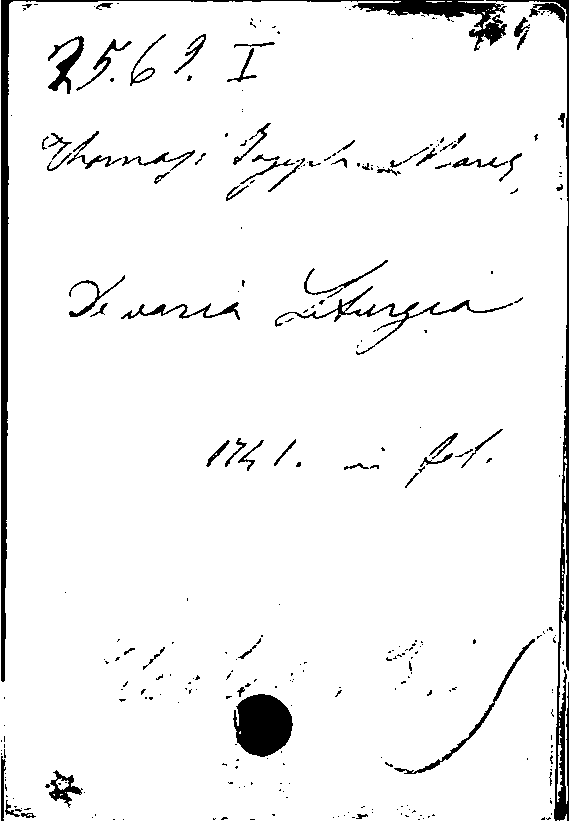 25.69. I
Thomasi Joseph Maria,
De varia Liturgia
1741. in fol.